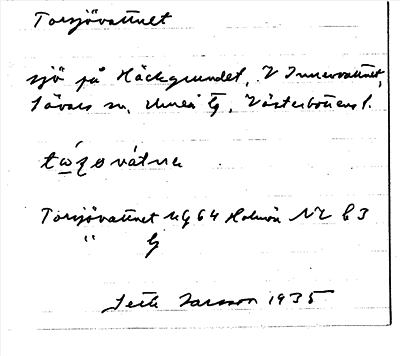 Torsjövattnet
sjö på Häckgrundet, V Innervattnet,
Sävars sn, Umeå tg, Västerbottens l.
Torsjövattnet UG 64 Holmön NV b 3
" G
Larsson 1935